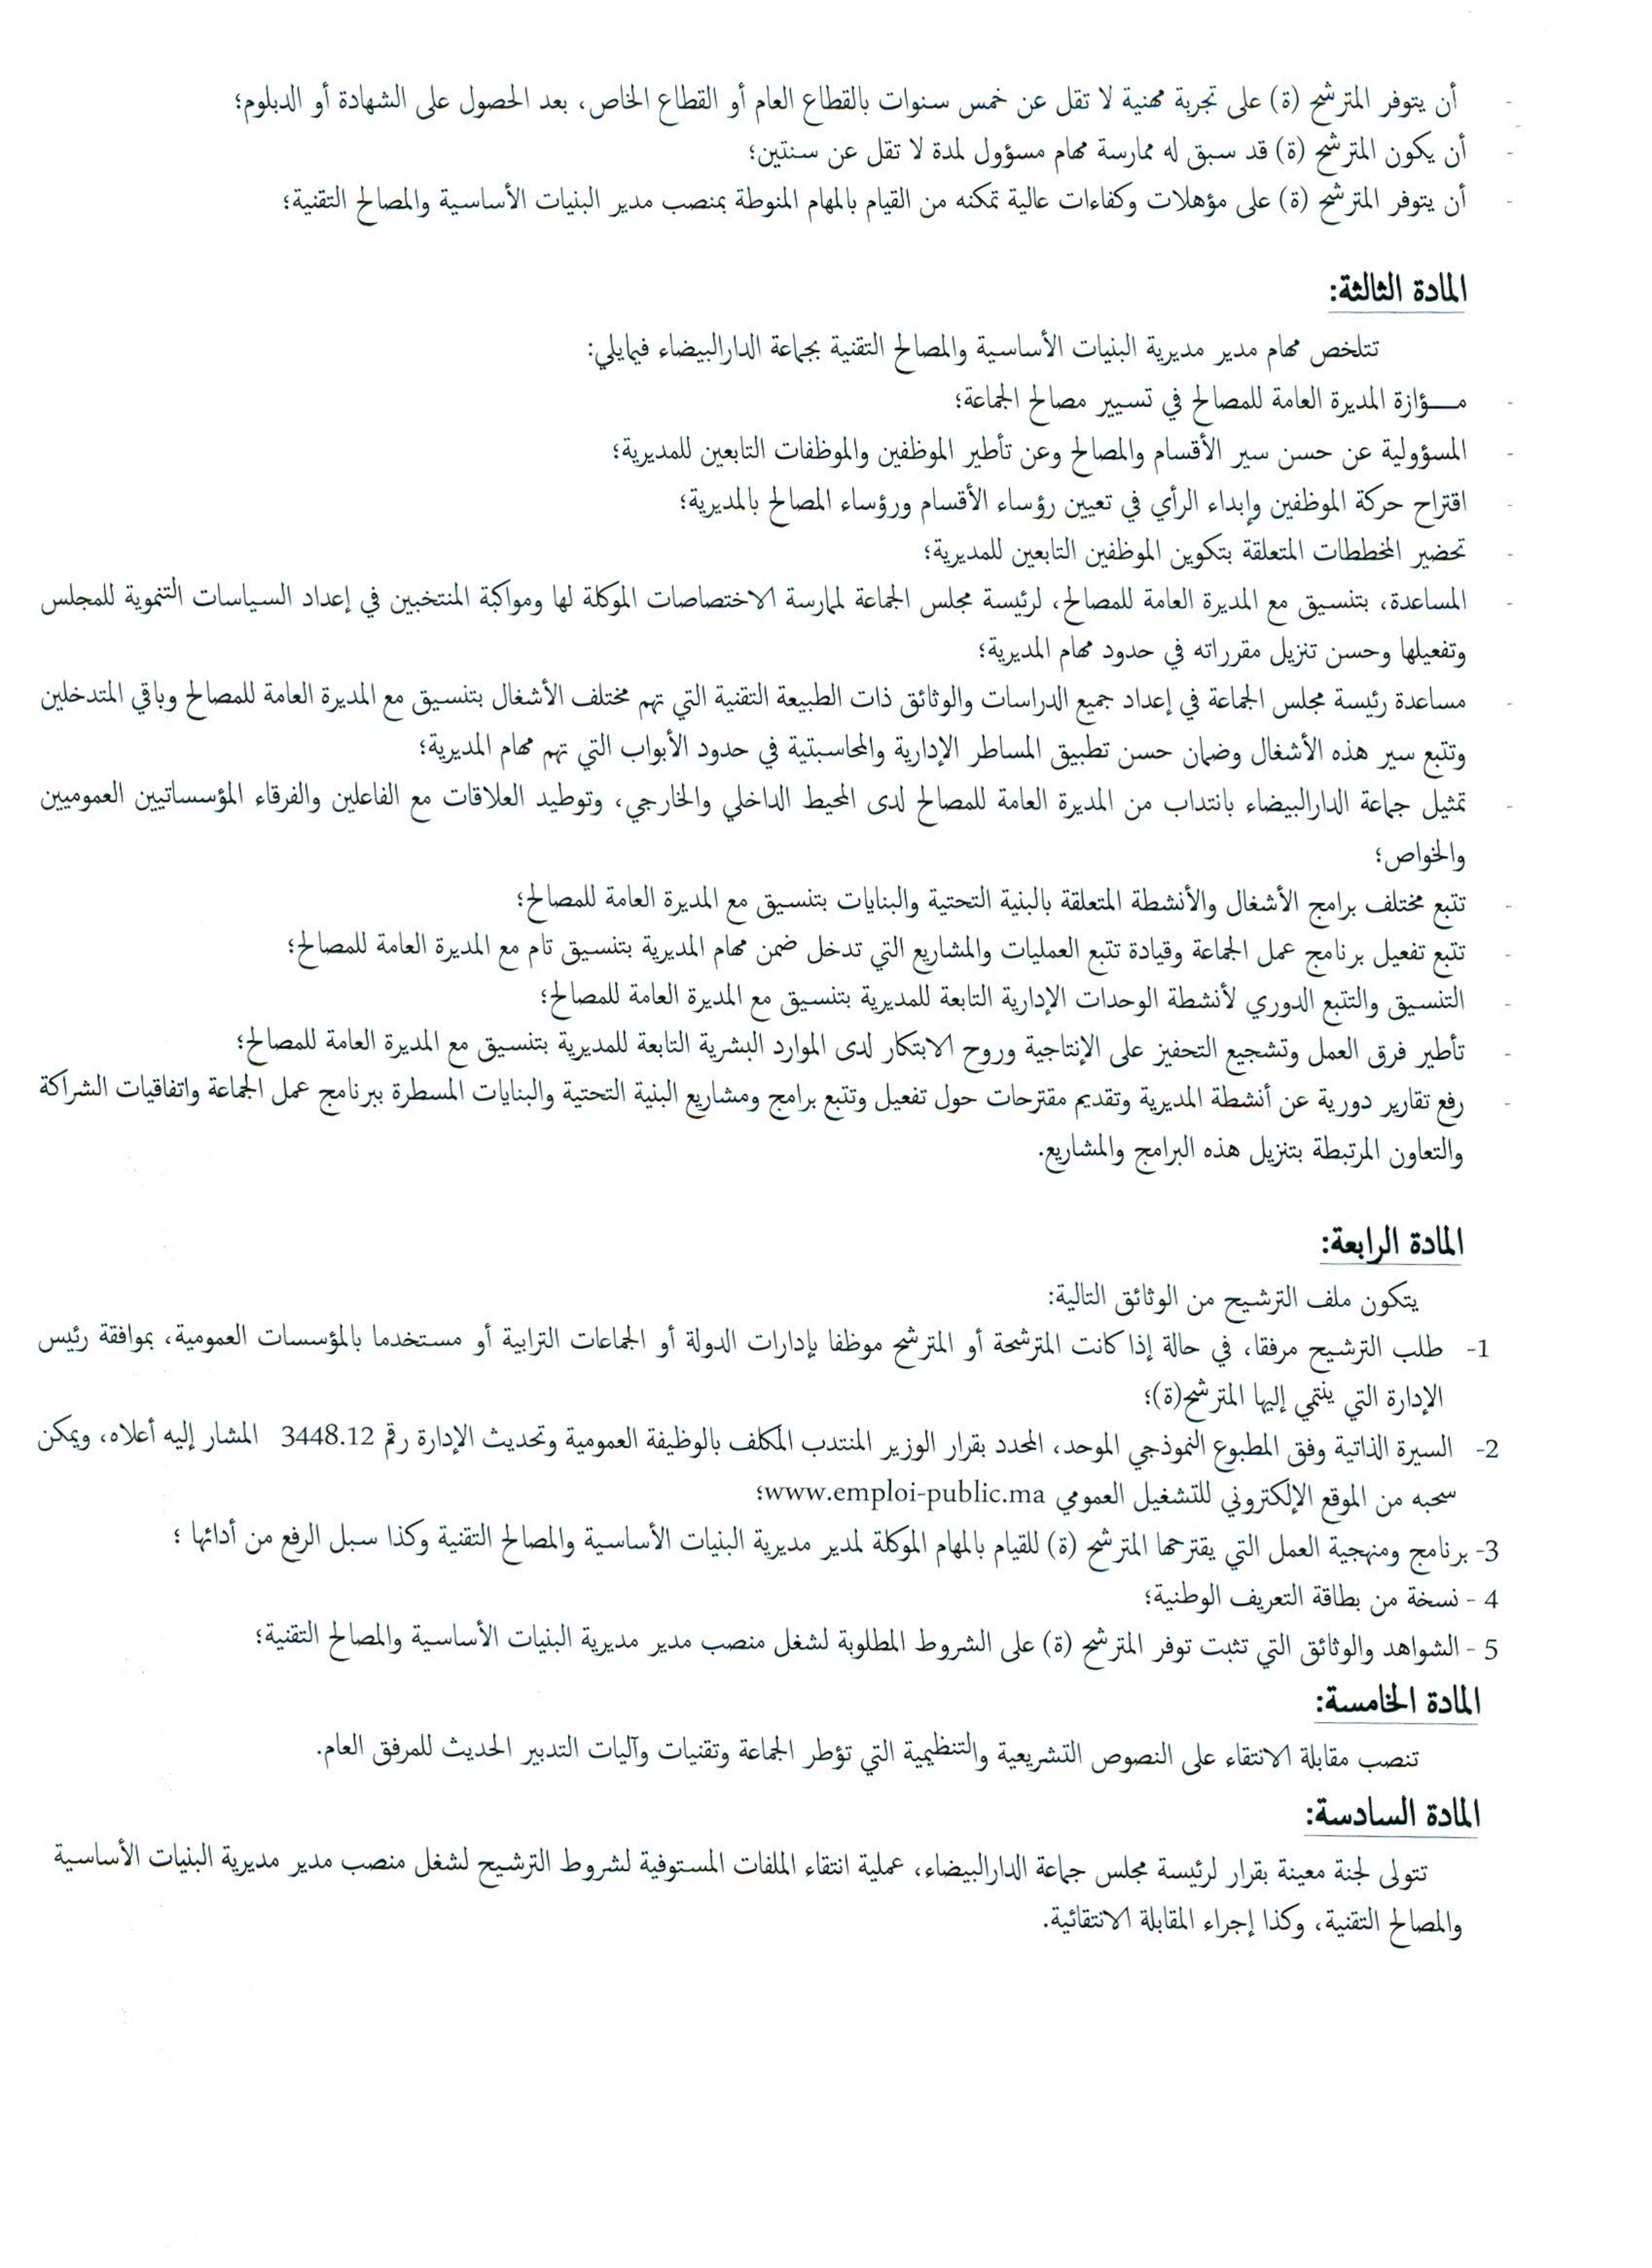 - أن يتوفر المترشح (ة) على تجربة مهنية لا تقل عن خمس سنوات بالقطاع العام أو القطاع الخاص، بعد الحصول على الشهادة أو الدبلوم؛
- أن يكون المترشح (ة) قد سبق له ممارسة مهام مسؤول لمدة لا تقل عن سنتين؛
- أن يتوفر المترشح (ة) على مؤهلات وكفاءات عالية تمكنه من القيام بالمهام المنوطة بمنصب مدير البنيات الأساسية والمصالح التقنية؛
المادة الثالثة:
تتلخص مهام مدير مديرية البنيات الأساسية والمصالح التقنية بجماعة الدارالبيضاء فيمايلي:
- مـــؤازة المديرة العامة للمصالح في تسيير مصالح الجماعة؛
- المسؤولية عن حسن سير الأقسام والمصالح وعن تأطير الموظفين والموظفات التابعين للمديرية؛
- اقتراح حركة الموظفين وإبداء الرأي في تعيين رؤساء الأقسام ورؤساء المصالح بالمديرية؛
- تحضير المخططات المتعلقة بتكوين الموظفين التابعين للمديرية؛
- المساعدة، بتنسيق مع المديرة العامة للمصالح، لرئيسة مجلس الجماعة لممارسة الاختصاصات الموكلة لها ومواكبة المنتخبين في إعداد السياسات التنموية للمجلس
وتفعيلها وحسن تنزيل مقرراته في حدود مهام المديرية؛
- مساعدة رئيسة مجلس الجماعة في إعداد جميع الدراسات والوثائق ذات الطبيعة التقنية التي تهم مختلف الأشغال بتنسيق مع المديرة العامة للمصالح وباقي المتدخلين
وتتبع سير هذه الأشغال وضمان حسن تطبيق المساطر الإدارية والمحاسبتية في حدود الأبواب التي تهم مهام المديرية؛
- تمثيل جماعة الدارالبيضاء بانتداب من المديرة العامة للمصالح لدى المحيط الداخلي والخارجي، وتوطيد العلاقات مع الفاعلين والفرقاء المؤسساتيين العموميين
والخواص؛
- تتبع مختلف برامج الأشغال والأنشطة المتعلقة بالبنية التحتية والبنايات بتنسيق مع المديرة العامة للمصالح؛
- تتبع تفعيل برنامج عمل الجماعة وقيادة تتبع العمليات والمشاريع التي تدخل ضمن مهام المديرية بتنسيق تام مع المديرة العامة للمصالح؛
- التنسيق والتتبع الدوري لأنشطة الوحدات الإدارية التابعة للمديرية بتنسيق مع المديرة العامة للمصالح؛
- تأطير فرق العمل وتشجيع التحفيز على الإنتاجية وروح الابتكار لدى الموارد البشرية التابعة للمديرية بتنسيق مع المديرة العامة للمصالح؛
- رفع تقارير دورية عن أنشطة المديرية وتقديم مقترحات حول تفعيل وتتبع برامج ومشاريع البنية التحتية والبنايات المسطرة ببرنامج عمل الجماعة واتفاقيات الشراكة
والتعاون المرتبطة بتنزيل هذه البرامج والمشاريع.
المادة الرابعة:
يتكون ملف الترشيح من الوثائق التالية:
1- طلب الترشيح مرفقا، في حالة إذا كانت المترشحة أو المترشح موظفا بإدارات الدولة أو الجماعات الترابية أو مستخدما بالمؤسسات العمومية، بموافقة رئيس
الإدارة التي ينتمي إليها المترشح(ة)؛
2- السيرة الذاتية وفق المطبوع النموذجي الموحد، المحدد بقرار الوزير المنتدب المكلف بالوظيفة العمومية وتحديث الإدارة رقم 3448.12 المشار إليه أعلاه، ويمكن
سحبه من الموقع الإلكتروني للتشغيل العمومي www.emploi-public.ma؛
3- برنامج ومنهجية العمل التي يقترحها المترشح (ة) للقيام بالمهام الموكلة لمدير مديرية البنيات الأساسية والمصالح التقنية وكذا سبل الرفع من أدائها ؛
4 - نسخة من بطاقة التعريف الوطنية؛
5 - الشواهد والوثائق التي تثبت توفر المترشح (ة) على الشروط المطلوبة لشغل منصب مدير مديرية البنيات الأساسية والمصالح التقنية؛
المادة الخامسة:
تنصب مقابلة الانتقاء على النصوص التشريعية والتنظيمية التي تؤطر الجماعة وتقنيات وآليات التدبير الحديث للمرفق العام.
المادة السادسة:
تتولى لجنة معينة بقرار لرئيسة مجلس جماعة الدارالبيضاء، عملية انتقاء الملفات المستوفية لشروط الترشيح لشغل منصب مدير مديرية البنيات الأساسية
والمصالح التقنية، وكذا إجراء المقابلة الانتقائية.